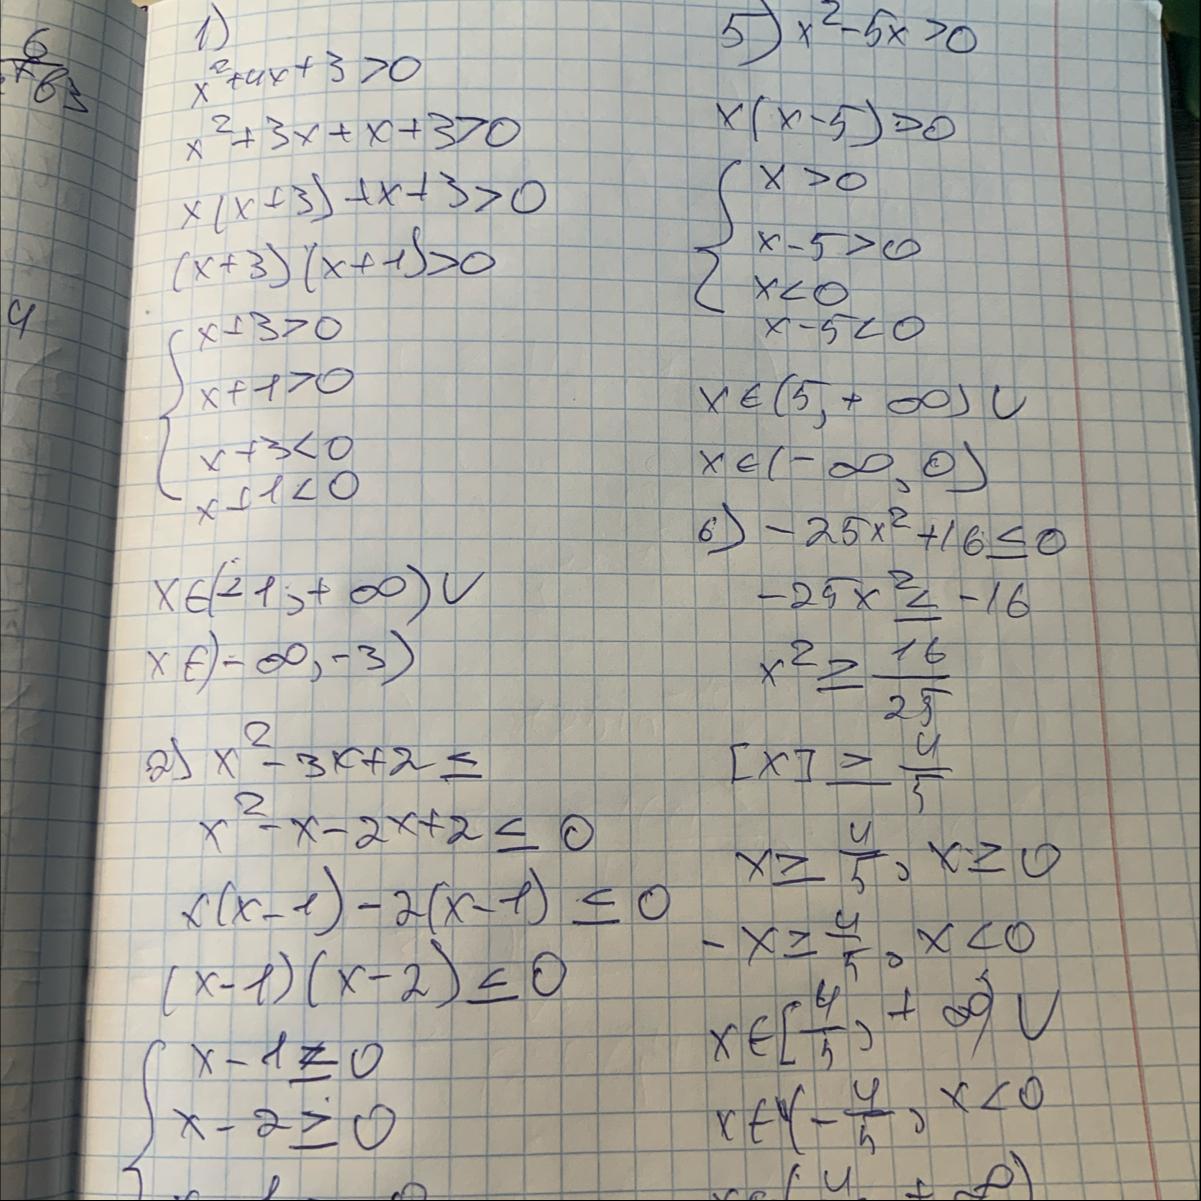 6
+63
4
1)
x²+4x+3>0
x²+3x+x+3>0
x(x+3)+x+3>0
(x+3)(x+1)>0
x+3>0
x+1>0
x+3<0
x+1<0
x∈(-1;+∞)∪
x∈)-∞,-3)
2) x²-3x+2≤
x²-x-2x+2≤0
x(x-1)-2(x-1)≤0
(x-1)(x-2)≤0
x-1≤0
x-2≥0
5) x²-5x>0
x(x-5)>0
x>0
x-5>0
x<0
x-5<0
x∈(5,+∞)∪
x∈(-∞,0)
6) -25x²+16≤0
-25x²≤-16
x²≥16/25
[x]≥4/5
x≥4/5, x≥0
-x≥4/5, x<0
x∈[4/5,+∞)∪
x∈(-4/5, x<0